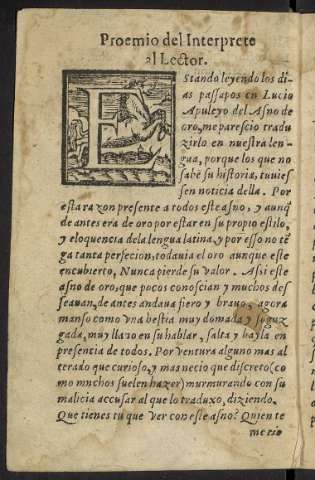 Proemio del Interprete
al Lector.
EStando leyendo los di-
as passapos en Lucio
Apuleyo del Asno de
oro, me parescio tradu
zirlo en nuestra len-
gua, porque los que no
sabē su historia, tuuies
sen noticia della. Por
esta razon presente a todos este asno, y aunq̃
de antes era de oro por estar en su propio estilo,
y eloquencia dela lengua latina, y por esso no tē
ga tanta perfecion, todauia el oro aunque este
encubierto, Nunca pierde su valor. Assi este
asno de oro, que pocos conoscian y muchos des
seauan, de antes andaua fiero y brauo, agora
manso como vna bestia muy domada y sojuz
gada, muy llano en su hablar, salta y bayla en
presencia de todos. Por ventura alguno mas al
terado que curioso, y mas necio que discreto (co
mo mnchos suelen hazer) murmurando con su
malicia accusar al que lo traduxo, diziendo.
Que tienes tu que ver con este asno? Quien te
metio